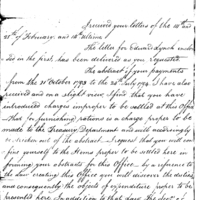 I received your letters of the 10th and
28th of February, and 14th ultimo.
The letter for Edward Lynch enclosed
in the first, has been delivered as you requested.
The abstract of your payments
from the 31 October 1793 to the 24th July 1794. I have also
received and on a slight view I find that you have
introduced charges improper to be settled at this Office
That for furnishing rations is a charge proper to be
made to the Treasury Department and will accordingly
be stricken out of the abstract. I request that you will con
fine yourself to the Items proper to be settled here in
forming your abstracts for this Office. by a reference to
the law creating this Office you will discover the duties
and consequently the objects of expenditure proper to be
presented here. In addition to that